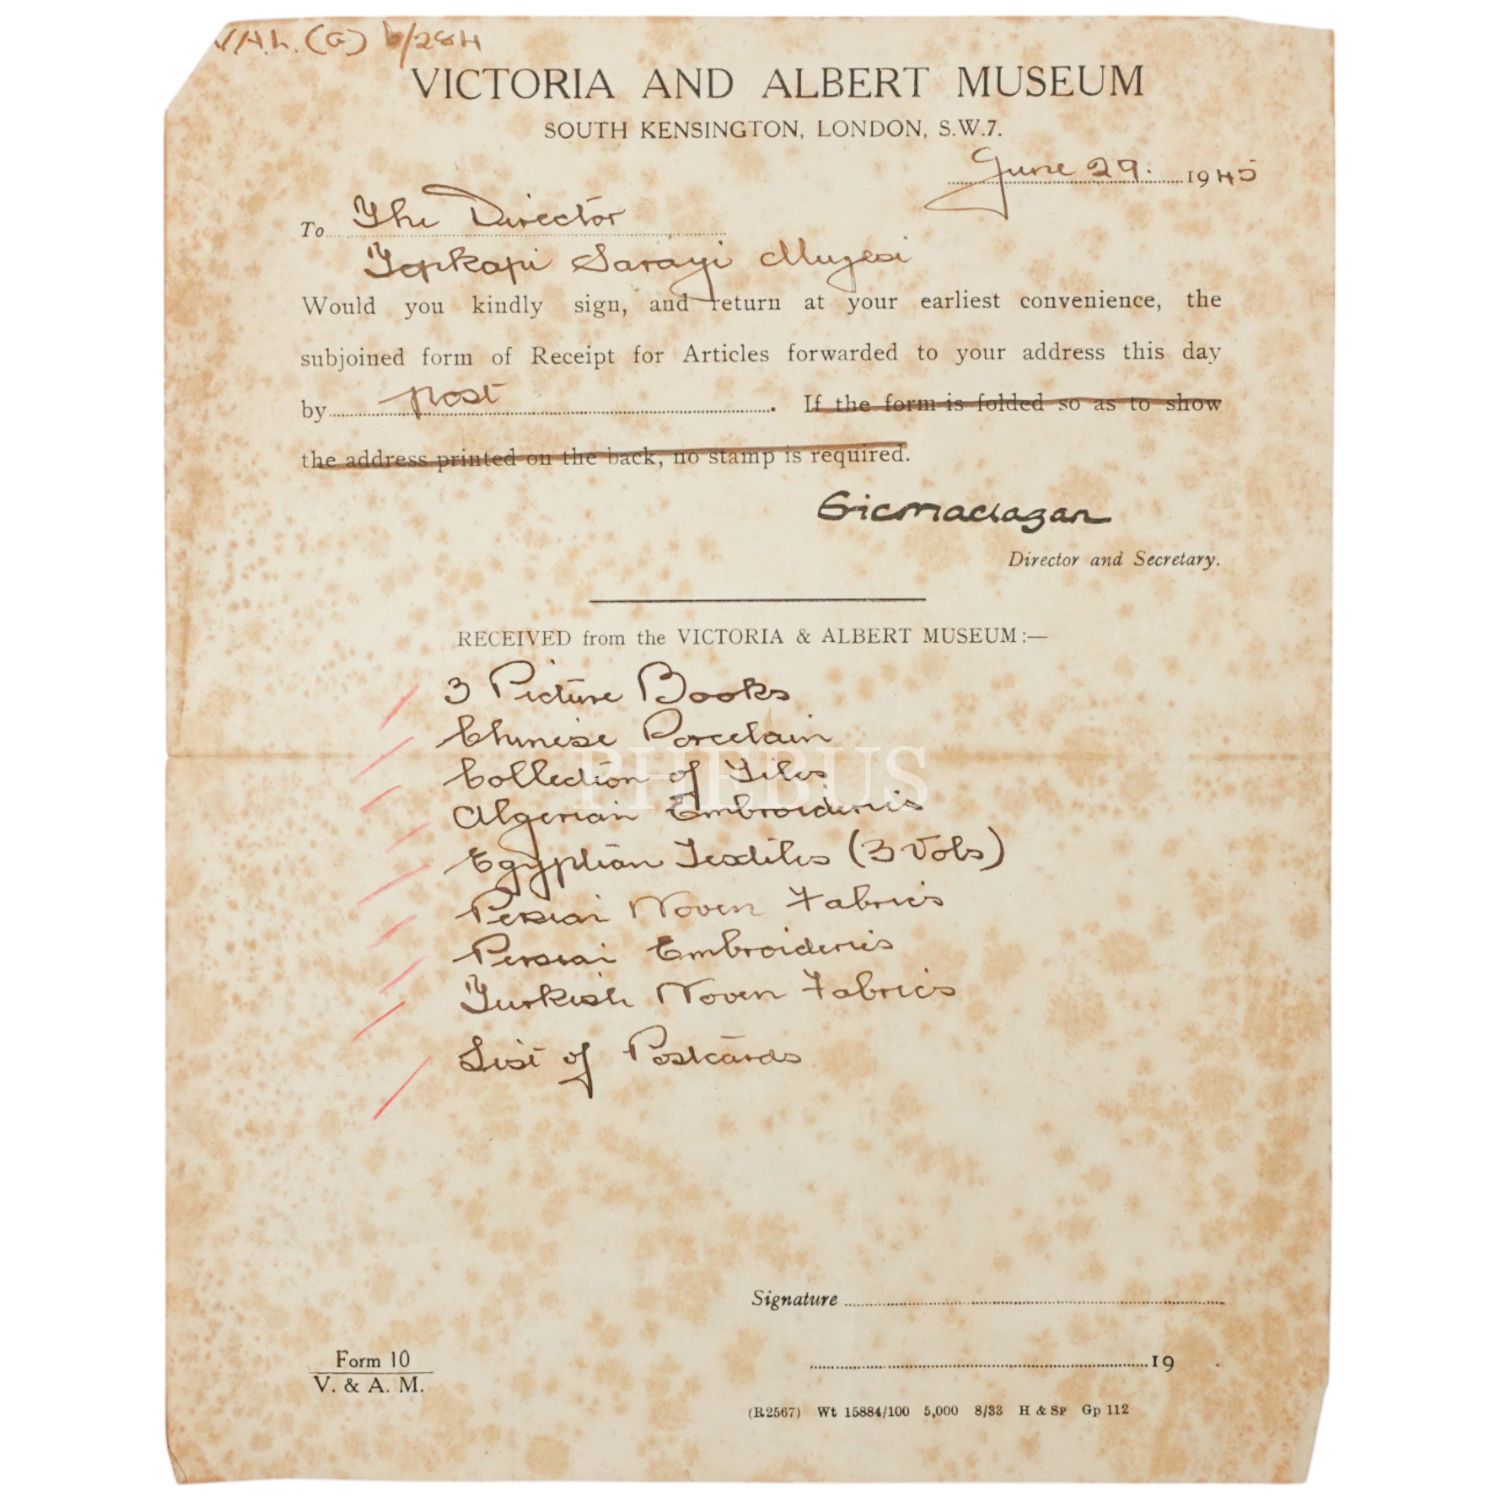 V.H.L. (G) 6/284
VICTORIA AND ALBERT MUSEUM
SOUTH KENSINGTON, LONDON, S.W.7.
June 29. 1945
To The Director
Topkapi Sarayi Muzesi
Would you kindly sign, and return at your earliest convenience, the
subjoined form of Receipt for Articles forwarded to your address this day
by post. If the form is folded so as to show
the address printed on the back, no stamp is required.
Eric Maclagan
Director and Secretary.
RECEIVED from the VICTORIA & ALBERT MUSEUM :—
3 Picture Books
Chinese Porcelain
Collection of Tiles
PHEBUS
Algerian Embroideries
Egyptian Textiles (3 Vols)
Persian Woven Fabrics
Persian Embroideries
Turkish Woven Fabrics
List of Postcards
Signature
19
Form 10
V. & A. M.
(R2567) Wt 15884/100 5,000 8/33 H & SP Gp 112